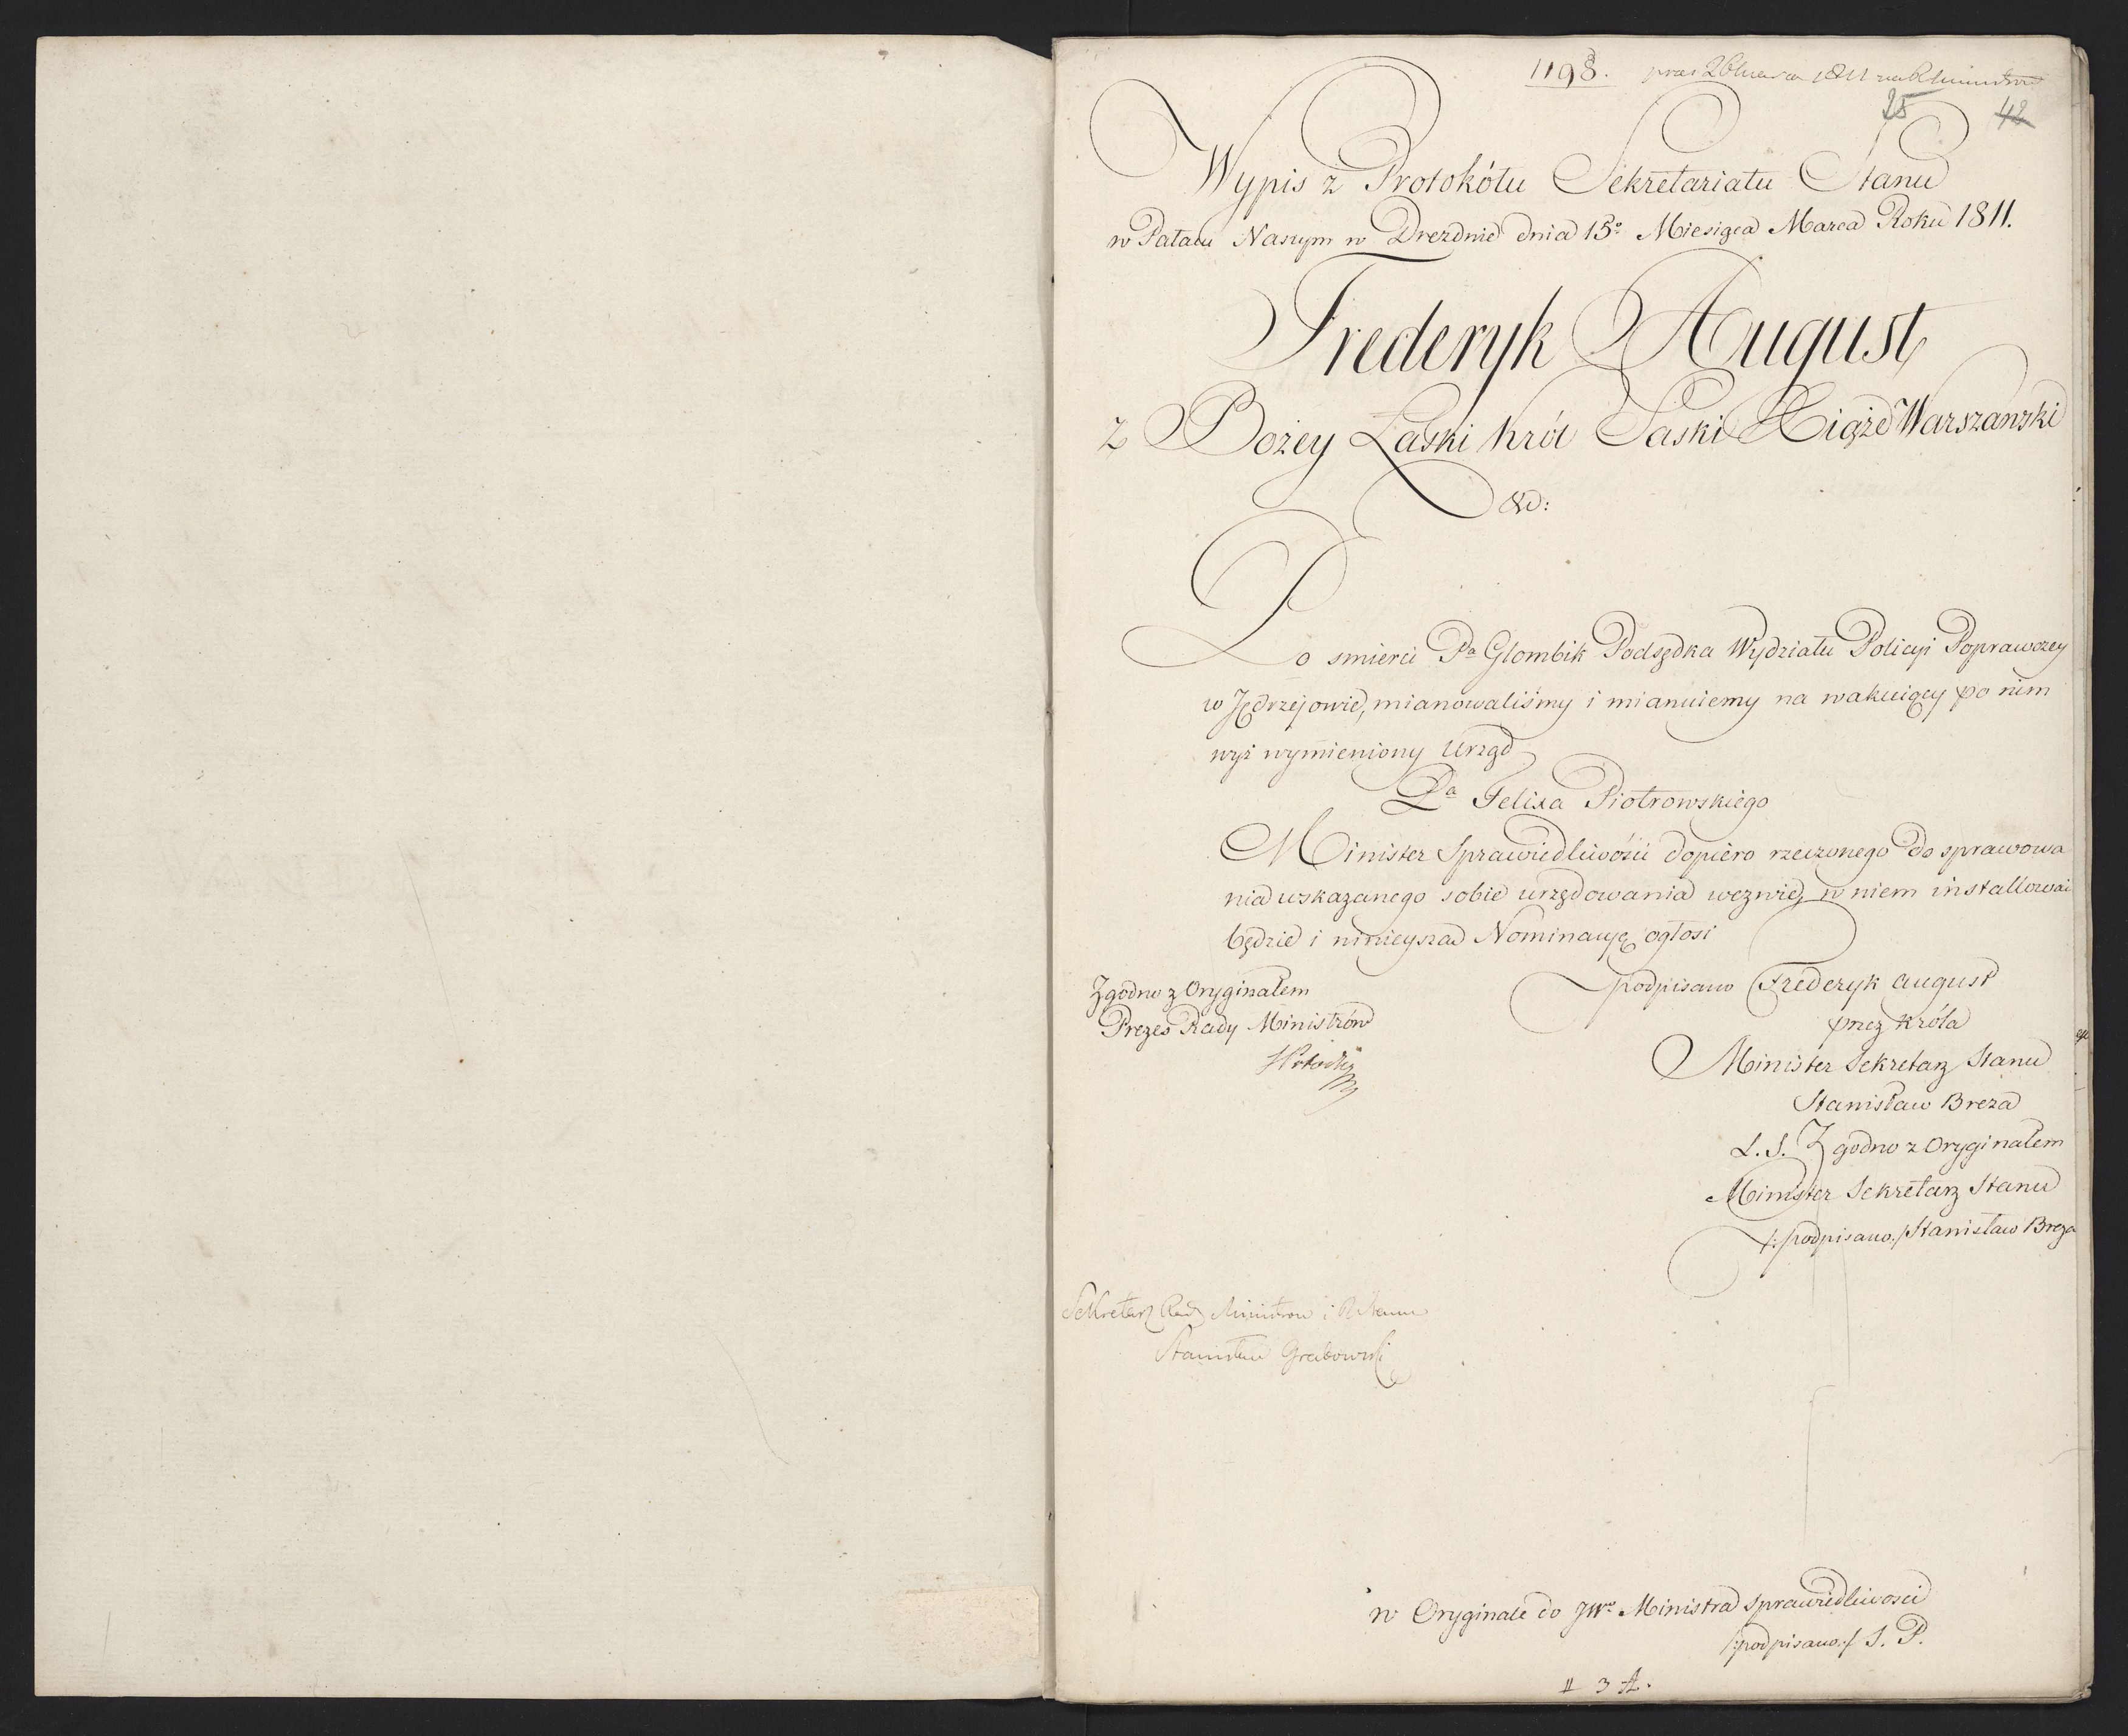 1198.
25 42
Wypis z Protokółu Sekretariatu Stanu
w Pałacu Naszym w Dreznie dnia 15º Miesiąca Marca Roku 1811.
Frederyk August
z Bożey Łaski Król Saski Xiąże Warszawski
&c:
Po smierci Pa Glombik Podsędka Wydziału Policyi Poprawczey
w Jędrzejowie, mianowaliśmy i mianuiemy na wakuiący po nim
wyż wymieniony Urząd
Pa Felixa Piotrowskiego
Minister Sprawiedliwości dopiero rzeczonego do sprawowa
nia wskazanego sobie urzędowania wezwie, w niem installować
będzie i ninieysza Nominacyę ogłosi
Zgodno z Oryginałem
Prezes Rady Ministrów
podpisano Frederyk August
przez Króla
Minister Sekretarz Stanu
Stanisław Breza
L. S. Zgodno z Oryginałem
Minister Sekretarz Stanu
/:podpisano:/ Stanisław Breza
Sekretarz Rady Ministrow i
Stanisław Grabowski
w Oryginale do JWo Ministra Sprawiedliwosci
/:podpisano:/ S. P.